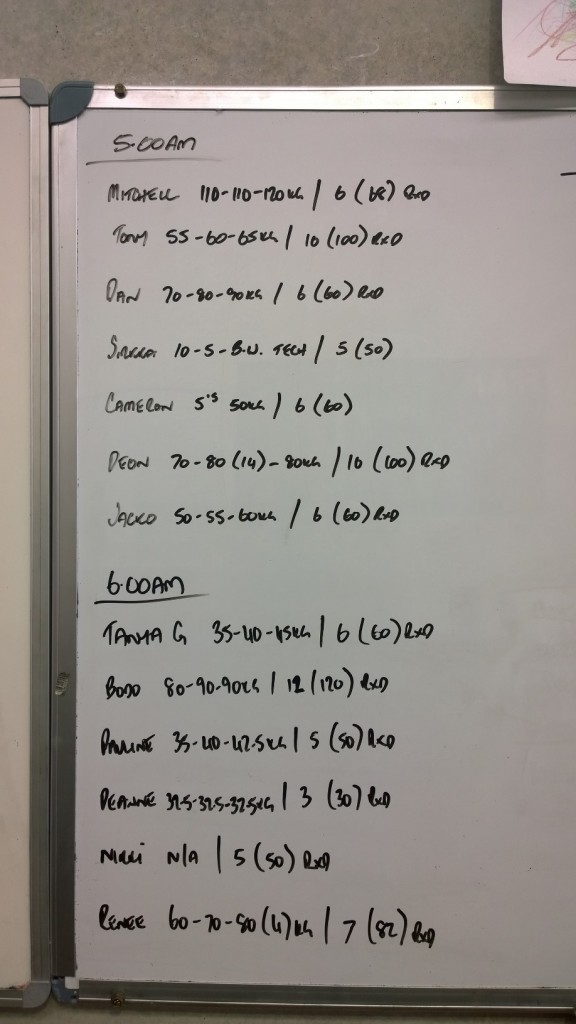 5.00AM
MITCHELL 110-110-120KG / 6 (68) RXD
TONY 55-60-65KG / 10 (100) RXD
DAN 70-80-90KG / 6 (60) RXD
10-5-B.W. TECH / 5 (50)
CAMERON 5'S 50KG / 6 (60)
DEON 70-80 (14) - 80KG / 10 (100) RXD
JACKO 50-55-60KG / 6 (60) RXD
6.00AM
TANYA G 35-40-45KG / 6 (60) RXD
BODO 80-90-90KG / 12 (120) RXD
PAULINE 35-40-42.5KG / 5 (50) RXD
DEANNE 32.5-32.5-32.5KG / 3 (30) RXD
NIKKI N/A / 5 (50) RXD
RENEE 60-70-80 (4) KG / 7 (82) RXD